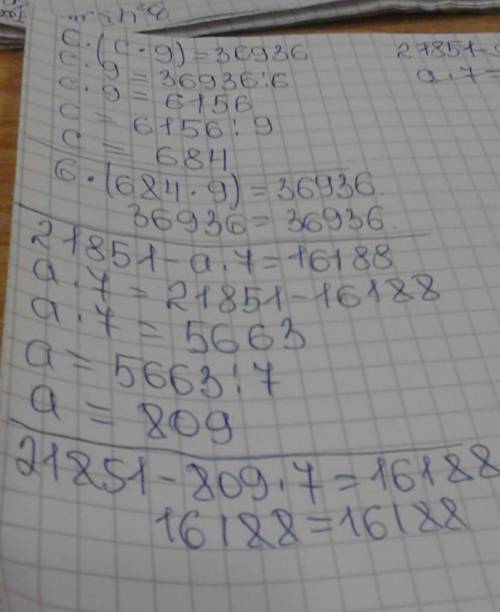 6·(c·9)=36936
c·9=36936:6
c·9=6156
c=6156:9
c=684
6·(684·9)=36936.
36936=36936.
21851-a·7=16188
a·7=21851-16188
a·7=5663
a=5663:7
a=809
21851-809·7=16188
16188=16188
21851-
a·7=